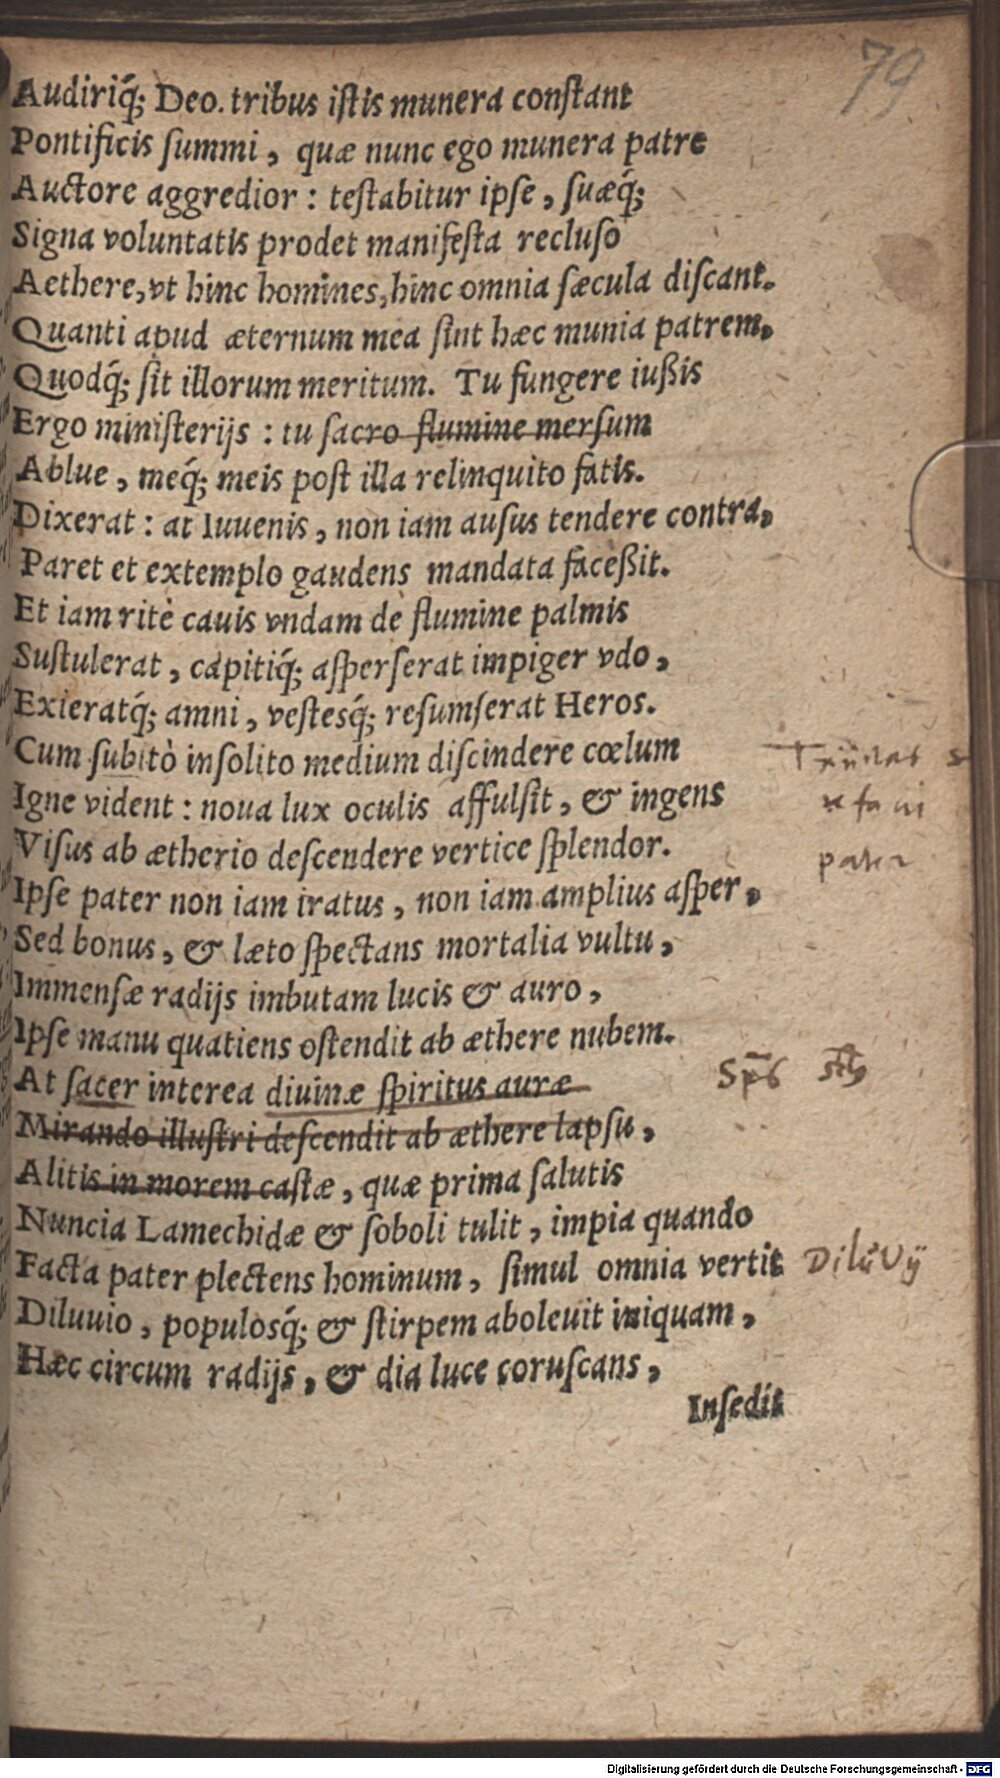 79
Audiriq́; Deo. tribus iſtis munera conſtant
Pontificis ſummi, quæ nunc ego munera patre
Auctore aggredior: teſtabitur ipſe, ſuæq́;
Signa voluntatis prodet manifeſta recluſo
Aethere, vt hinc homines, hinc omnia ſæcula diſcant.
Quanti apud æternum mea ſint hæc munia patrem,
Quodq́; ſit illorum meritum. Tu fungere iußis
Ergo miniſterijs: tu ſacro flumine merſum
Ablue, meq́; meis poſt illa relinquito fatis.
Dixerat: at Iuuenis, non iam auſus tendere contra,
Paret et extemplo gaudens mandata faceßit.
Et iam ritè cauis vndam de flumine palmis
Suſtulerat, capitiq́; aſperſerat impiger vdo,
Exieratq́; amni, veſtesq́; reſumſerat Heros.
Cum ſubitò inſolito medium diſcindere cœlum
Igne vident: noua lux oculis affulſit, & ingens
pater
Viſus ab ætherio deſcendere vertice ſplendor.
Ipſe pater non iam iratus, non iam amplius aſper,
Sed bonus, & læto ſpectans mortalia vultu,
Immenſæ radijs imbutam lucis & auro,
Ipſe manu quatiens oſtendit ab æthere nubem.
Sp̄s
At ſacer interea diuinæ ſpiritus auræ
Mirando illuſtri deſcendit ab æthere lapſu,
Alitis in morem caſtæ, quæ prima ſalutis
Nuncia Lamechidæ & ſoboli tulit, impia quando
Facta pater plectens hominum, ſimul omnia vertit
Diluvij
Diluuio, populosq́; & ſtirpem aboleuit iniquam,
Hæc circum radijs, & dia luce coruſcans,
Inſedit
Digitalisierung gefördert durch die Deutsche Forschungsgemeinschaft - DFG